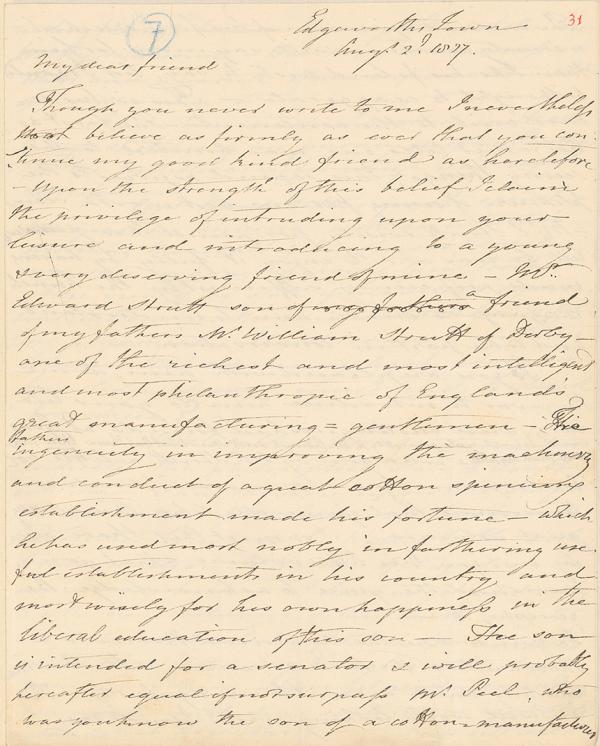 7
31
Edgeworths Town
Augt 2d 1827.
My dear friend
Though you never write to me I nevertheless
most believe as firmly as ever that you con-
tinue my good kind friend as heretofore
- Upon the strength of this belief I claim
the privilege of intruding upon your
leisure and introducing to a young
& very deserving friend of mine - Mr.
Edward Strutt son of my fathers a friend
of my fathers Mr. William Strutt of Derby -
one of the richest and most intelligent
and most philanthropic of England's
great manufacturing = gentlemen - His
fathers
ingenuity in improving the machinery
and conduct of a great cotton spinning
establishment made his fortune - which
he has used most nobly in furthering use-
ful establishments in his country, and
most wisely for his own happiness in the
liberal education of this son - Hee son
is intended for a senator & will probably
hereafter equal if not surpass Mr. Peel, who
was you know the son of a cotton-manufacturer